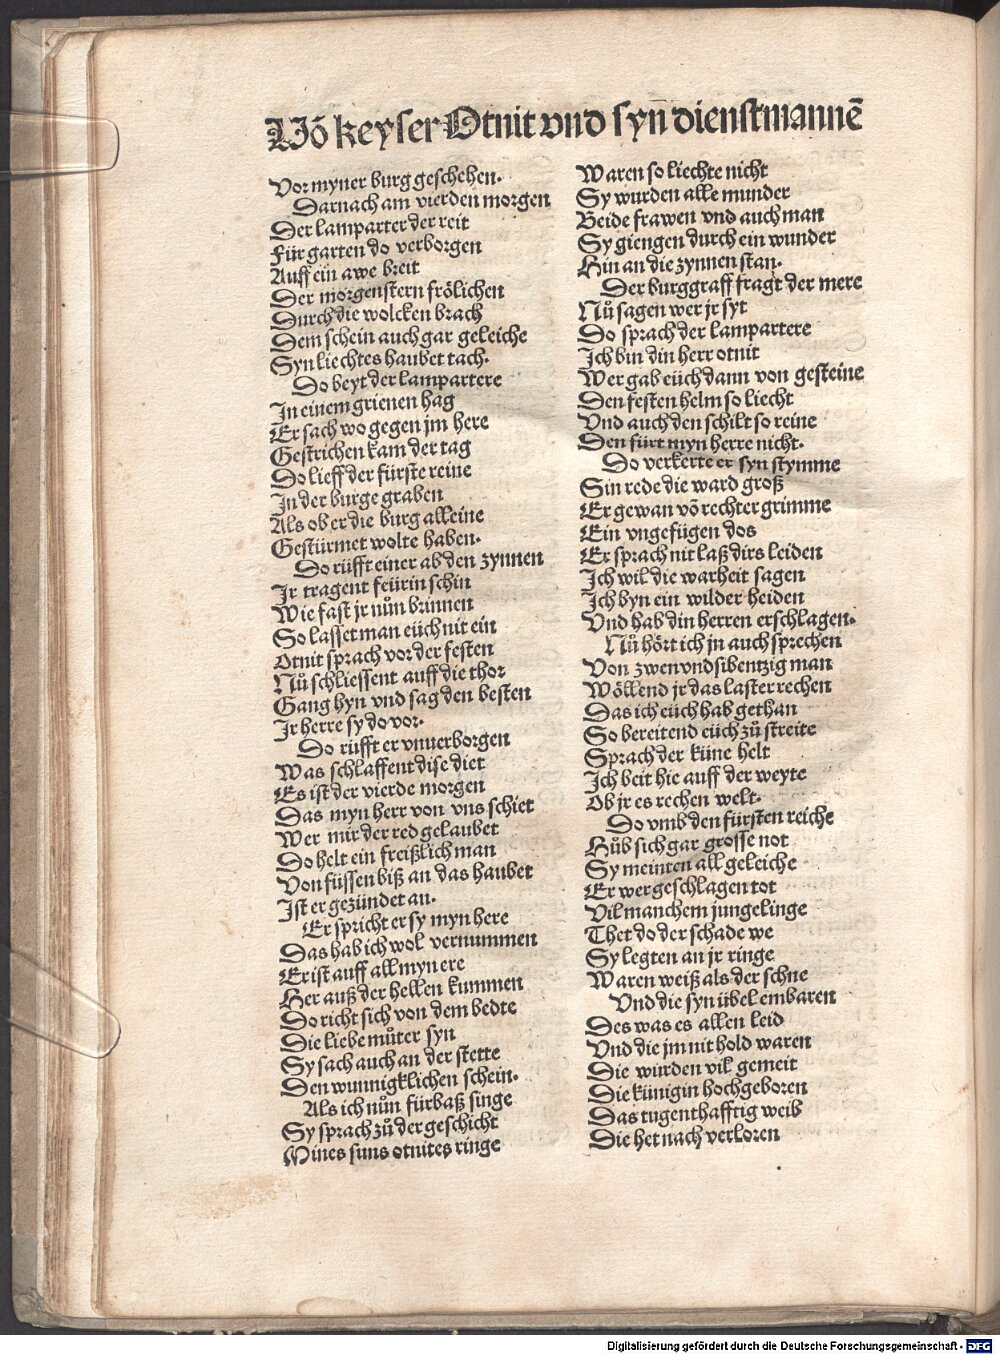 Võ keyser Otnit vnd syn̄ dienstmannẽ
Vor myner burg geschehen.
Darnach am vierden morgen
Der lamparter der reit
Für garten do verborgen
Auff ein awe breit
Der morgenstern frölichen
Durch die wolcken brach
Dem schein auch gar geleiche
Syn liechtes haubet tach.
Do beyt der lampartere
In einem grienen hag
Er sach wo gegen jm here
Gestrichen kam der tag
Do lieff der fürste reine
In der burge graben
Als ob er die burg alleine
Gestürmet wolte haben.
Do rüfft einer ab den zynnen
Ir tragent feürin schin
Wie fast jr nům brinnen
So lasset man eüch nit ein
Otnit sprach vor der festen
Nů schliessent auff die thor
Gang hyn vnd sag den besten
Ir herre sy do vor.
Do rüfft er vnuerborgen
Was schlaffent dise diet
Es ist der vierde morgen
Das myn herr von vns schiet
Wer mir der red gelaubet
Do helt ein freißlich man
Von füssen biß an das haubet
Ist er gezündet an.
Er spricht er sy myn here
Das hab ich wol vernummen
Er ist auff all myn ere
Her auß der hellen kummen
Do richt sich von dem bedte
Die liebe můter syn
Sy sach auch an der stette
Den wunnigklichen schein.
Als ich nůn fürbaß singe
Sy sprach zů der geschicht
Mines suns otnites ringe
Waren so liechte nicht
Sy wurden alle munder
Beide frawen vnd auch man
Sy giengen durch ein wunder
Hin an die zynnen stan.
Der burggraff fragt der mere
Nů sagen wer jr syt
Do sprach der lampartere
Ich bin din herr otnit
Wer gab eüch dann von gesteine
Den festen helm so liecht
Vnd auch den schilt so reine
Den fürt myn herre nicht.
Do verkerte er syn stymme
Sin rede die ward groß
Er gewan võ rechter grimme
Ein vngefügen dos
Er sprach nit laß dirs leiden
Ich wil die warheit sagen
Ich byn ein wilder heiden
Vnd hab din herren erschlagen.
Nů hört ich jn auch sprechen
Von zwen vnd sibentzig man
Wöllend jr das laster rechen
Das ich eüch hab gethan
So bereitend eüch zů streite
Sprach der küne helt
Ich beit hie auff der weyte
Ob jr es rechen welt.
Do vmb den fürsten reiche
Hůb sich gar grosse not
Sy meinten all geleiche
Er wer geschlagen tot
Vil manchem jungelinge
Thet do der schade we
Sy legten an jr ringe
Waren weiß als der schne
Vnd die syn übel embaren
Des was es allen leid
Vnd die jm nit hold waren
Die wurden vil gemeit
Die künigin hochgeboren
Das tugenthafftig weib
Die het nach verloren
Digitalisierung gefördert durch die Deutsche Forschungsgemeinschaft - DFG